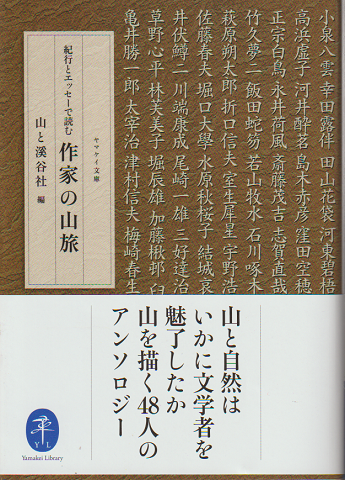 小泉八雲 幸田露伴 田山花袋 河東碧梧
高浜虚子 河井酔茗 島木赤彦 窪田空穂
正宗白鳥 永井荷風 斎藤茂吉 志賀直哉
竹久夢二 飯田蛇笏 若山牧水 石川啄木
萩原朔太郎 折口信夫 室生犀星 宇野浩
佐藤春夫 堀口大學 水原秋桜子 結城哀
井伏鱒二 川端康成 尾崎一雄 三好達治
草野心平 林芙美子 堀辰雄 加藤楸邨 臼
亀井勝一郎 太宰治 津村信夫 梅崎春生
ヤマケイ文庫
紀行とエッセーで読む
作家の山旅
山と溪谷社 編
山と自然は
いかに文学者を
魅了したか
山を描く48人の
アンソロジー
Y L
Yamakei Library